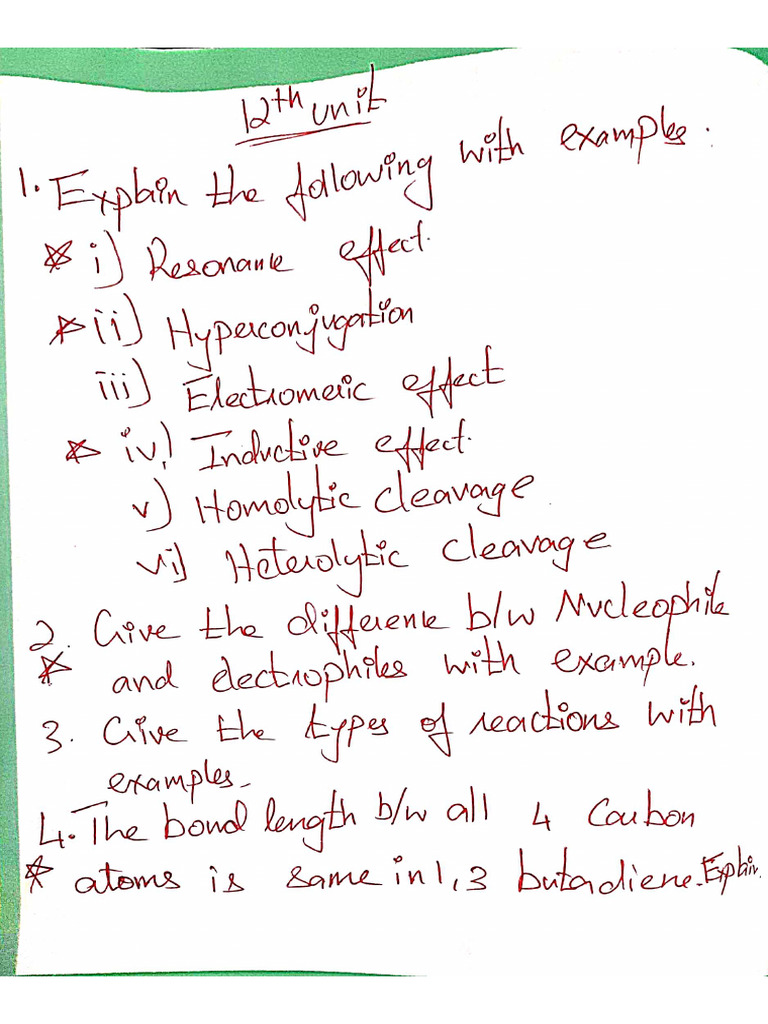 12th unit
1. Explain the following with examples:
* i) Resonance effect.
* ii) Hyperconjugation
iii) Electromeric effect
* iv) Inductive effect.
v) Homolytic cleavage
vi) Heterolytic cleavage
2. Give the difference b/w Nucleophile
* and electrophiles with example.
3. Give the types of reactions with
examples.
4. The bond length b/w all 4 Carbon
* atoms is same in 1,3 butadiene. Explain.